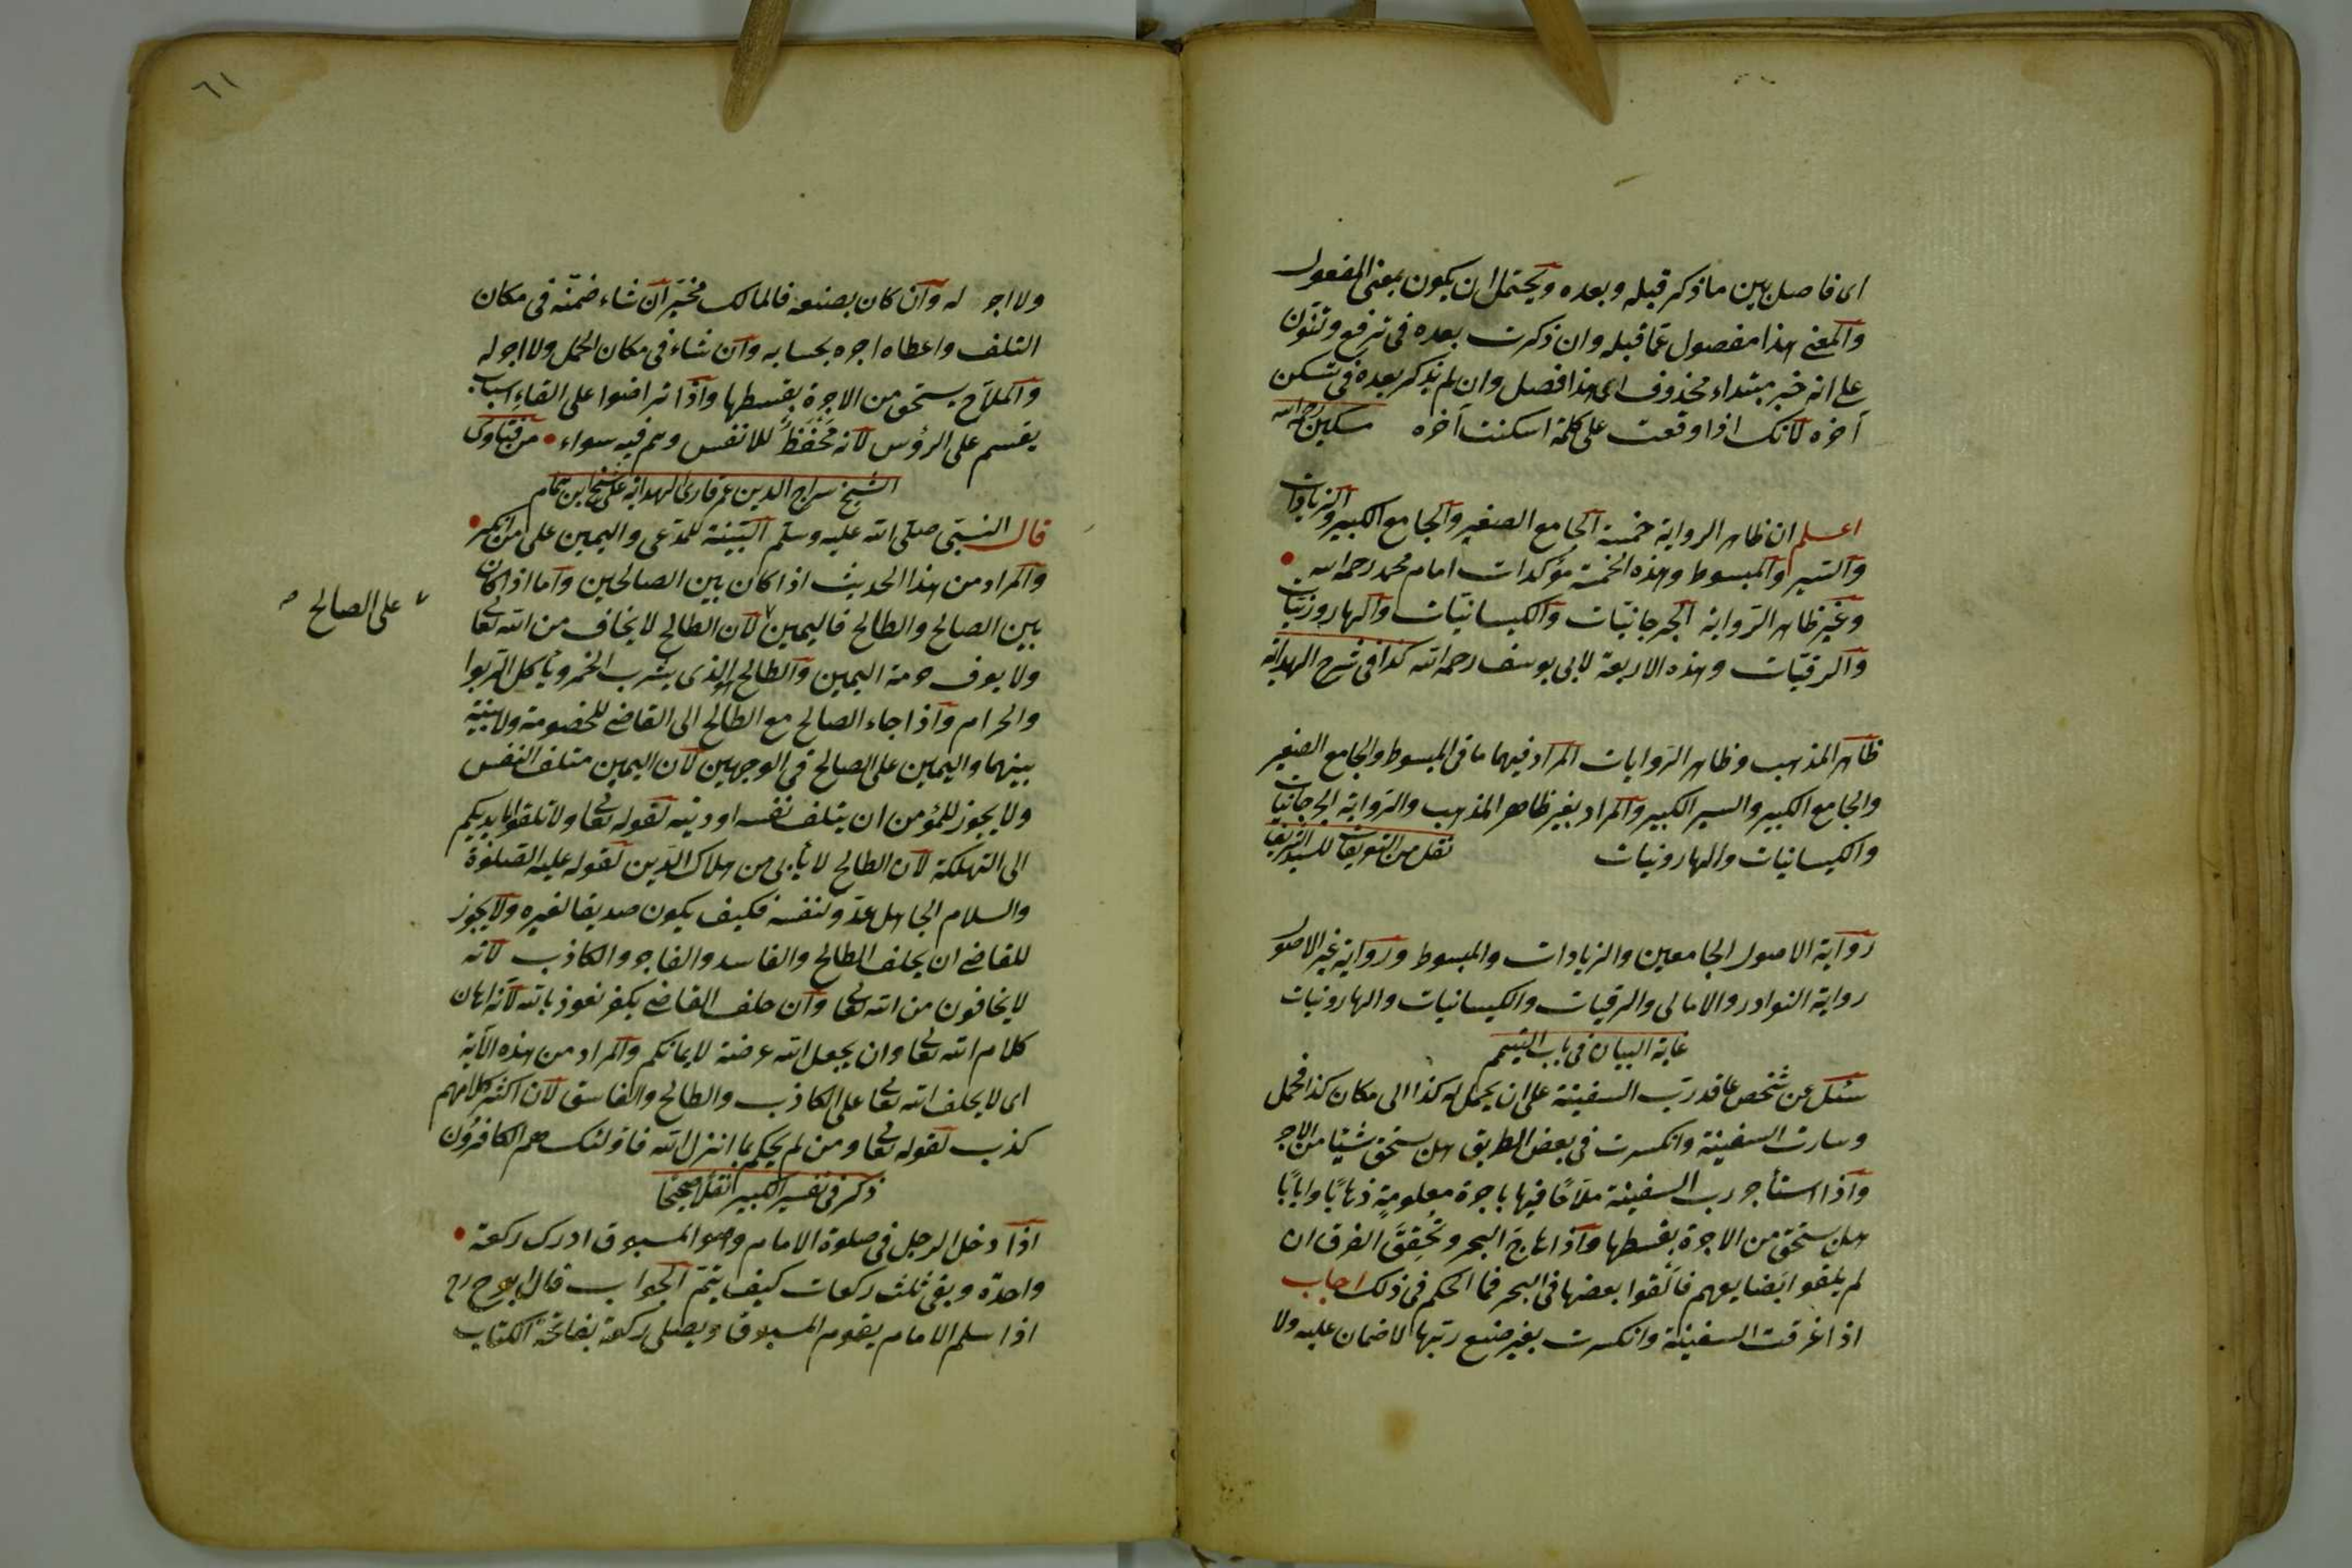 اى فاصل بين ما ذكر قبله وبعده ويحتمل ان يكون بمعنى المفعول
والمعنى هذا مفصول عما قبله وان ذكرت بعده فى ترفع وتنون
على انه خبر مبتداء محذوف اى هذا فصل وان لم تذكر بعده فى تسكن
آخره لانك اذا وقعت على كلمة اسكنت آخره مسكين رحمه الله
اعلم ان ظاهر الرواية خمسة الجامع الصغير والجامع الكبير والزيادات
والسير والمبسوط وهذه الخمسة مؤكدات امام محمد رحمه الله
وغير ظاهر الرواية الجرجانيات والكيسانيات والهارونيات
والرقيات وهذه الاربعة لابى يوسف رحمه الله كذا فى شرح الهداية
ظاهر المذهب وظاهر الروايات المراد فيهما ما فى المبسوط والجامع الصغير
والجامع الكبير والسير الكبير والمراد بغير ظاهر المذهب والرواية الجرجانيات
والكيسانيات والهارونيات نقل من التعريفات للسيد الشريف
رواية الاصول الجامعين والزيادات والمبسوط ورواية غير الاصول
رواية النوادر والامالى والرقيات والكيسانيات والهارونيات
غاية البيان فى باب التيمم
سئل عن شخص عاقد رب السفينة على ان يحمل له كذا الى مكان كذا فحمل
وسارت السفينة وانكسرت فى بعض الطريق هل يستحق شيئا من الاجر
واذا استأجر رب السفينة ملاحا فيها باجرة معلومة ذهابا وايابا
هل يستحق من الاجرة بقسطها واذا هاج البحر وتحقق الغرق ان
لم يلقوا بضايعهم فالقوا بعضها فى البحر فما الحكم فى ذلك اجاب
اذا غرقت السفينة وانكسرت بغير صنع ربها لا ضمان عليه ولا
٦١
ولا اجر له وان كان بصنعه فالمالك مخير ان شاء ضمنه فى مكان
التلف واعطاه اجره بحسابه وان شاء فى مكان الحمل ولا اجر له
والملاح يستحق من الاجرة بقسطها واذا تراضوا على القاء اسباب
يقسم على الرؤس لانه تحفظ للانفس وهم فيه سواء من فتاوى
الشيخ سراج الدين عمر قارئ الهداية على شيخ ابن همام
قال النبى صلى الله عليه وسلم البينة للمدعى واليمين على من انكر
والمراد من هذا الحديث اذا كان بين الصالحين واما اذا كان
بين الصالح والطالح فاليمين لان الطالح لا يخاف من الله تعالى
على الصالح
ولا يعرف حرمة اليمين والطالح الذى يشرب الخمر ويأكل الربوا
والحرام واذا جاء الصالح مع الطالح الى القاضى للخصومة ولا بينة
بينهما واليمين على الصالح فى الوجهين لان اليمين متلف النفس
ولا يجوز للمؤمن ان يتلف نفسه او دينه لقوله تعالى ولا تلقوا بايديكم
الى التهلكة لان الطالح لا يأبى من هلاك الدين لقوله عليه الصلوة
والسلام الجاهل عدو لنفسه فكيف يكون صديقا لغيره ولا يجوز
للقاضى ان يحلف الطالح والفاسد والفاجر والكاذب لانه
لا يخافون من الله تعالى وان حلف القاضى يكفر نعوذ بالله لانه اهان
كلام الله تعالى وان يجعل الله عرضة لايمانكم والمراد من هذه الآية
اى لا يحلف الله تعالى على الكاذب والطالح والفاسق لان اكثر كلامهم
كذب لقوله تعالى ومن لم يحكم بما انزل الله فاولئك هم الكافرون
ذكر فى تفسير الكبير نقلا صحيحا
اذا دخل الرجل فى صلوة الامام وهو المسبوق ادرك ركعة
واحدة وبقى ثلث ركعات كيف يتم الجواب قال ابو ح رح
اذا سلم الامام يقوم المسبوق ويصلى ركعة بفاتحة الكتاب